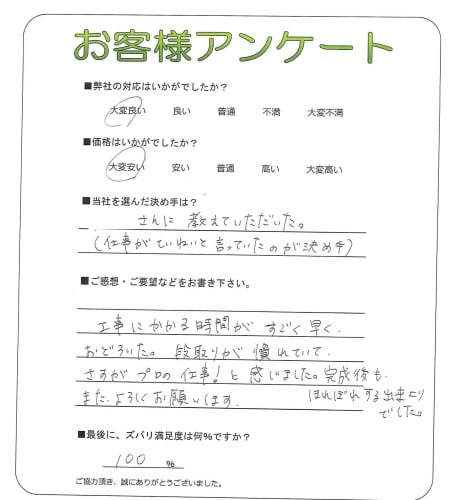 お客様アンケート
■弊社の対応はいかがでしたか？
大変良い 良い 普通 不満 大変不満
■価格はいかがでしたか？
大変安い 安い 普通 高い 大変高い
■当社を選んだ決め手は？
さんに 教えていただいた。
(仕事がていねいと言っていたのが決め手)
■ご感想・ご要望などをお書き下さい。
工事にかかる時間が すごく早く、
おどろいた。段取りが 慣れていて、
さすが プロの 仕事！と 感じました。完成後も、
ほれぼれする出来上り
でした。
また、よろしくお願いします。
■最後に、ズバリ満足度は何%ですか？
100 %
ご協力頂き、誠にありがとうございました。